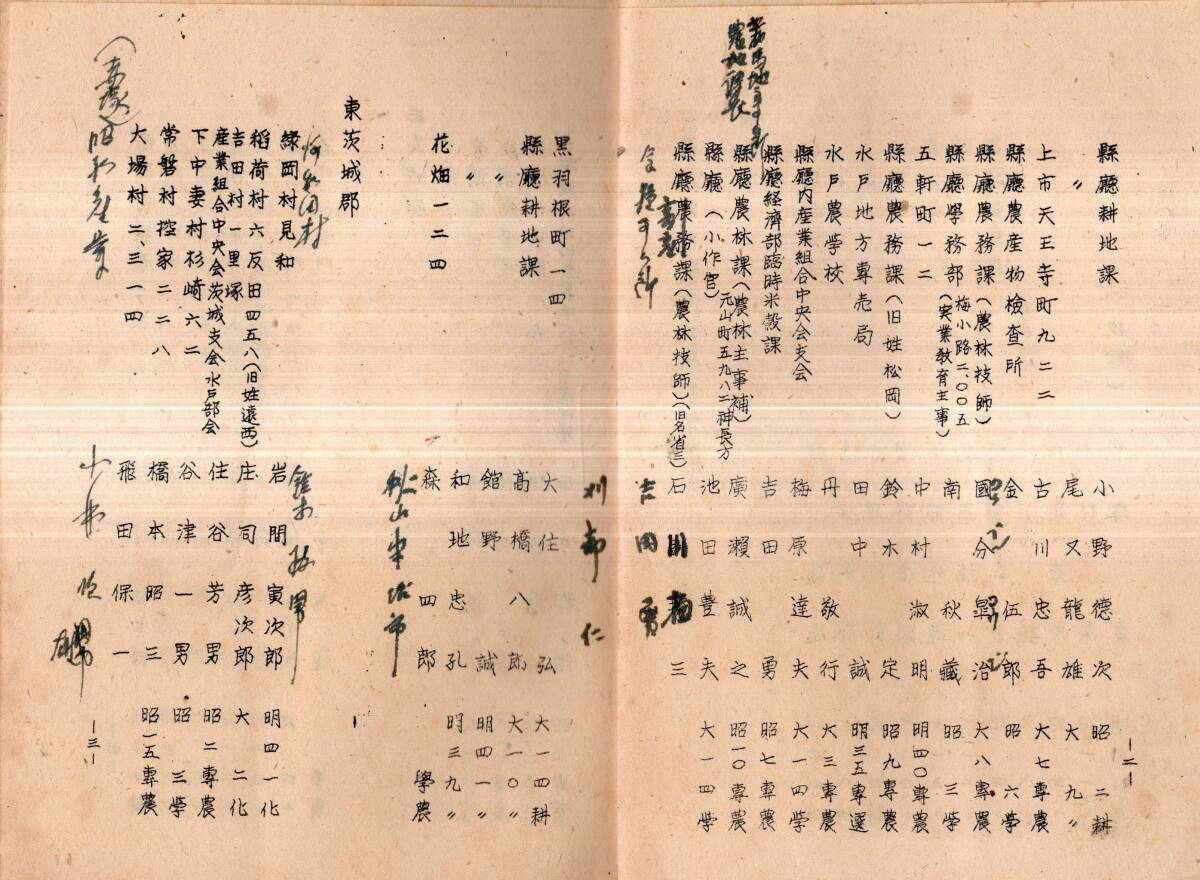 縣廳耕地課 小野德次 昭 二耕
〃 尾又龍雄 大 九〃
上市天王寺町九二二 古川忠吾 大七專農
縣廳農産物檢查所 金 伍郎 昭 六学
縣廳農務課(農林技師) 國分皐治 大八專農
梅小路二、〇〇五
縣廳學務部(実業教育主事) 南 秋藏 昭 三学
五軒町一二 中村淑明 明四〇專農
縣廳農務課(旧姓松岡) 鈴木 定 昭九專農
水戸地方專売局 田中 誠 明三五專選
水戸農学校 丹 敬行 大三專農
縣廳内産業組合中央会支会 梅原達夫 大一四学
縣廳経濟部臨時米穀課 吉田 勇 昭七專農
縣廳農林課(農林主事補) 廣瀬誠之 昭一〇專農
元山町五九八二神長方
縣廳(小作官) 池田豊夫 大一四学
縣廳農務課(農林技師)(旧名省三) 石 三
吉田 勇
—二—
刈部 仁
黒羽根町一四 大住 弘 大一四耕
縣廳耕地課 高橋八郎 大一〇〃
〃 館野 誠 明四一〃
〃 和地忠孔 明三九〃
花畑一二四 森 四郎 學農
秋山
東茨城郡
村 鈴木
緑岡村見和 岩間寅次郎 明四一化
稻荷村六反田四五八(旧姓遠西) 庄司彦次郎 大 二化
吉田村一里塚 住谷芳男 昭二專農
産業組合中央会茨城支会水戸部会
下中妻村杉崎六二 谷津一男 昭 三学
常磐村控家二二八 橋本昭三 昭一五專農
大場村二、三一四 飛田保一
小林
—三—